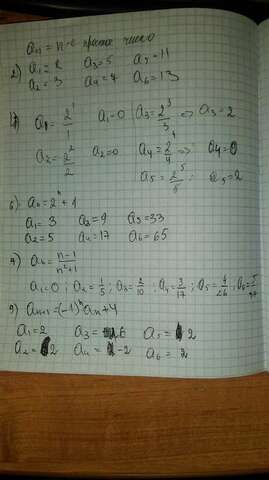 aₙ = n-e простое число
2) a₁ = 2 a₃ = 5 a₅ = 11
a₂ = 3 a₄ = 7 a₆ = 13
a₁ = 2¹/1 a₁ = 0 a₃ = 2³/3 => a₃ = 2
a₂ = 2²/2 a₂ = 0 a₄ = 2⁴/4 => a₄ = 0
a₅ = 2⁵/5 ; a₅ = 2
6) aₙ = 2ⁿ + 1
a₁ = 3 a₃ = 9 a₅ = 33
a₂ = 5 a₄ = 17 a₆ = 65
aₙ = n-1/n²+1
a₁ = 0 ; a₂ = 1/5 ; a₃ = 2/10 ; a₄ = 3/17 ; a₅ = 4/26 ; a₆ = 5/37
9) aₙ₊₁ = (-1)ⁿ aₙ + 4
a₁ = 2 a₃ = 6 a₅ = 2
a₂ = 2 a₄ = -2 a₆ = 2